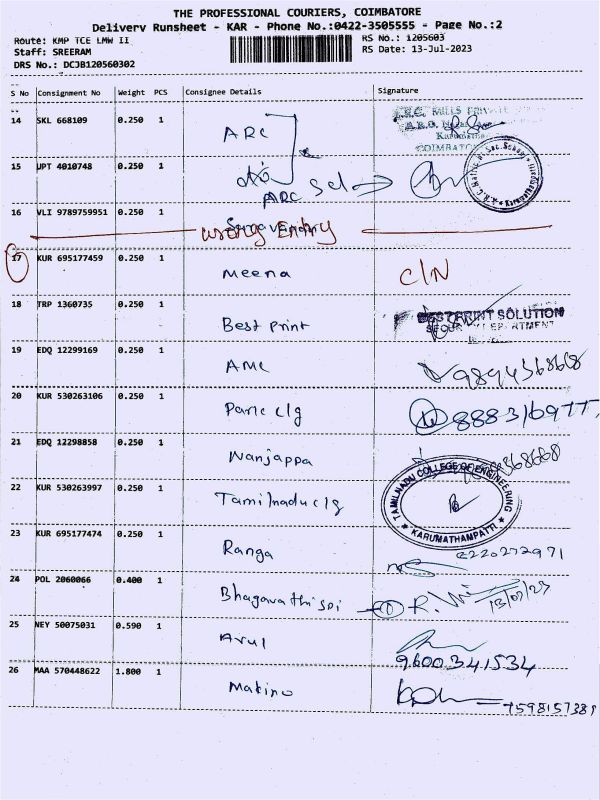 THE PROFESSIONAL COURIERS, COIMBATORE
Delivery Runsheet - KAR - Phone No.:0422-3505555 - Page No.:2
Route: KMP TCE LMW II
RS No.: 1205603
Staff: SREERAM
RS Date: 13-Jul-2023
DRS No.: DCJB120560302
S No Consignment No Weight PCS Consignee Details Signature
14 SKL 668109 0.250 1 ARC
COIMBATORE
15 JPT 4010748 0.250 1 ARC Scl
16 VLI 9789759951 0.250 1
Wrong Entry
17 KUR 695177459 0.250 1 Meena C/N
18 TRP 1360735 0.250 1 Best Print BEST PRINT SOLUTION
19 EDQ 12299169 0.250 1 AMC 9894368668
20 KUR 530263106 0.250 1 Park clg
21 EDQ 12298858 0.250 1 Nanjappa
22 KUR 530263997 0.250 1 Tamilnadu clg TAMILNADU COLLEGE OF ENGINEERING
KARUMATHAMPATTI
23 KUR 695177474 0.250 1 Ranga
24 POL 2060066 0.400 1 Bhagavathi 13/07/23
25 NEY 50075031 0.590 1 Arul
9600341534
26 MAA 570448622 1.800 1 Makino
7598157381